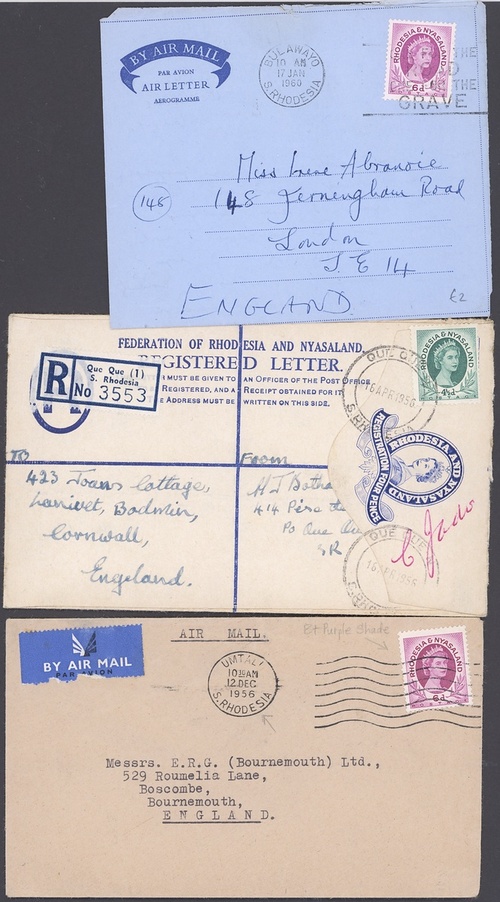 BY AIR MAIL
PAR AVION
AIR LETTER
AEROGRAMME
BULAWAYO
10 AM
17 JAN
1960
S. RHODESIA
RHODESIA & NYASALAND
6d
THE
THE
GRAVE
Miss Irene Abranovie
148
148 Jerningham Road
London
S.E 14
ENGLAND
£2
FEDERATION OF RHODESIA AND NYASALAND.
REGISTERED LETTER.
MUST BE GIVEN TO AN OFFICER OF THE POST OFFICE
REGISTERED, AND A RECEIPT OBTAINED FOR IT.
ADDRESS MUST BE WRITTEN ON THIS SIDE.
R
Que Que (1)
S. Rhodesia
No 3553
QUE QUE
16 APR 1956
RHODESIA & NYASALAND
4½d
RHODESIA AND NYASALAND
REGISTRATION FOUR PENCE
TO
423 Joans Cottage,
Lanivet, Bodmin,
Cornwall,
England.
From
H J Botha
414
Po Que Qu
SR
QUE QUE
16 APR 1956
BY AIR MAIL
PAR AVION
AIR MAIL.
Purple Shade
UMTALI
10 30 AM
12 DEC
1956
S. RHODESIA
RHODESIA & NYASALAND
6d
Messrs. E.R.G. (Bournemouth) Ltd.,
529 Roumelia Lane,
Boscombe,
Bournemouth,
ENGLAND.